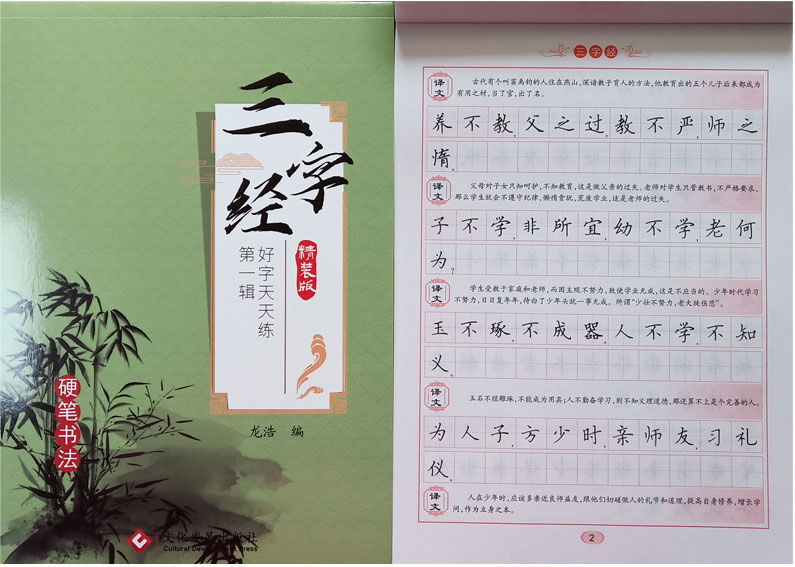 三字经
精装版
好字天天练
第一辑
硬笔书法
龙浩 编
文化发展出版社
Cultural Development Press
三字经
译文
古代有个叫窦禹钧的人住在燕山,深谙教子育人的方法,他教育出的五个儿子后来都成为
有用之材,当了官,出了名。
养不教,父之过,教不严,师之
惰。
译文
父母对子女只知呵护,不知教育,这是做父亲的过失。老师对学生只管教书,不严格要求,
那么学生就会不遵守纪律,懒惰贪玩,荒废学业,这是老师的过失。
子不学,非所宜,幼不学,老何
为?
译文
学生受教于家庭和老师,而因主观不努力,致使学业无成,这是不应当的。少年时代学习
不努力,日日复年年,待白了少年头就一事无成。所谓“少壮不努力,老大徒伤悲”。
玉不琢,不成器,人不学,不知
义。
译文
玉石不经雕琢,不能成为用具;人不勤奋学习,则不知义理道德,那还算不上是个完善的人。
为人子,方少时,亲师友,习礼
仪。
译文
人在少年时,应该多亲近良师益友,跟他们切磋做人的礼节和道理,提高自身修养,增长学
问,作为立身之本。
2